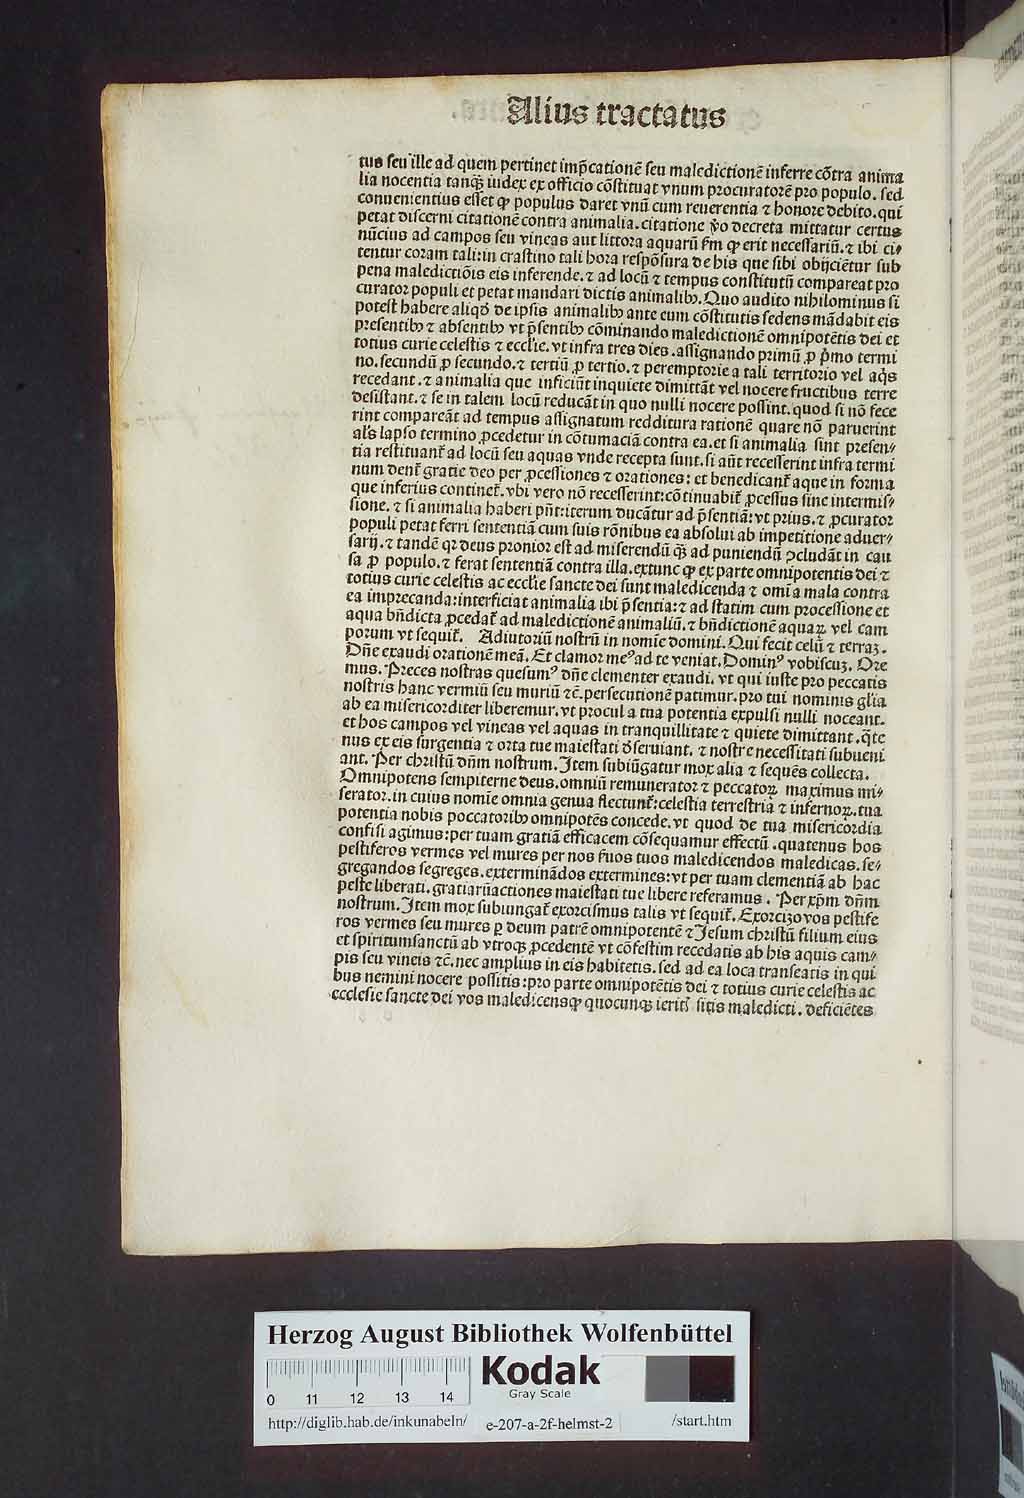 Alius tractatus
tus seu ille ad quem pertinet imp̄cationē seu maledictionē inferre cōtra anima
lia nocentia tanqȝ̄ iudex ex officio cōstituat vnum procuratorē pro populo. sed
conuenientius esset ꝙ populus daret vnū cum reuerentia ⁊ honore debito. qui
petat discerni citationē contra animalia. citatione v̊o decreta mittatur certus
nūcius ad campos seu vineas aut littora aquarū fm̄ ꝙ erit necessariū. ⁊ ibi ci⸗
tentur coram tali: in crastino tali hora respōsura de his que sibi obijciētur sub
pena maledictiōis eis inferende. ⁊ ad locū ⁊ tempus constitutū compareat pro
curator populi et petat mandari dictis animalibꝫ. Quo audito nihilominus si
potest habere aliqd̓ de ipsis animalibꝫ ante eum cōstitutis sedens mādabit eis
presentibꝫ ⁊ absentibꝫ vt p̄sentibꝫ cōminando maledictionē omnipotētis dei et
totius curie celestis ⁊ eccl̓ie. vt infra tres dies. assignando primū ꝓ p̄mo termi
no. secundū ꝓ secundo. ⁊ tertiū ꝓ tertio. ⁊ peremptorie a tali territorio vel aq̄s
recedant. ⁊ animalia que inficiūt inquiete dimittāt vel nocere fructibus terre
desistant. ⁊ se in talem locū reducāt in quo nulli nocere possint. quod si nō fece
rint compareāt ad tempus assignatum redditura rationē quare nō paruerint
al̓s lapso termino ꝓcedetur in cōtumaciā contra ea. et si animalia sint presen⸗
tia restituant᷑ ad locū seu aquas vnde recepta sunt. si aūt recesserint infra termi
num dent᷑ gratie deo per ꝓcessiones ⁊ orationes: et benedicant᷑ aque in forma
que inferius continet᷑. vbi vero nō recesserint: cōtinuabit᷑ ꝓcessus sine intermis⸗
sione. ⁊ si animalia haberi pn̄t: iterum ducātur ad p̄sentiā: vt prius. ⁊ ꝓcurator
populi petat ferri sententiā cum suis rōnibus ea absolui ab impetitione aduer⸗
sarij. ⁊ tandē qꝛ deus pronior est ad miserendū qȝ̄ ad puniendū ꝯcludāt in cau
sa ꝓ populo. ⁊ ferat sententiā contra illa. extunc ꝙ ex parte omnipotentis dei ⁊
totius curie celestis ac eccl̓ie sancte dei sunt maledicenda ⁊ om̄ia mala contra
ea imprecanda: interficiat animalia ibi p̄sentia: ⁊ ad statim cum processione et
aqua bn̄dicta ꝓcedat᷑ ad maledictionē animaliū. ⁊ bn̄dictionē aquaꝝ vel cam
porum vt sequit᷑. Adiutoriū nostrū in nomīe domini. Qui fecit celū ⁊ terraꝫ.
Dn̄e exaudi orationē meā. Et clamor meꝰ ad te veniat. Dominꝰ vobiscuꝫ. Ore
mus. Preces nostras quesumꝰ dn̄e clementer exaudi. vt qui iuste pro peccatis
nostris hanc vermiū seu muriū ⁊ē. persecutionē patimur. pro tui nominis gl̓ia
ab ea misericorditer liberemur. vt procul a tua potentia expulsi nulli noceant.
et hos campos vel vineas vel aquas in tranquillitate ⁊ quiete dimittant. q̄te
nus ex eis surgentia ⁊ orta tue maiestati d̓seruiant. ⁊ nostre necessitati subueni
ant. Per christū dn̄m nostrum. Item subiūgatur mox alia ⁊ sequēs collecta.
Omnipotens sempiterne deus. omniū remunerator ⁊ peccatoꝝ maximus mi⸗
serator. in cuius nomīe omnia genua flectunt᷑: celestia terrestria ⁊ infernoꝝ. tua
potentia nobis poccatoribꝫ omnipotēs concede. vt quod de tua misericordia
confisi agimus: per tuam gratiā efficacem cōsequamur effectū. quatenus hos
pestiferos vermes vel mures per nos ſ̄uos tuos maledicendos maledicas. se⸗
gregandos segreges. exterminādos extermines: vt per tuam clementiā ab hac
peste liberati. gratiarūactiones maiestati tue libere referamus. Per xp̄m dn̄m
nostrum. Item mox subiungat᷑ exorcismus talis vt sequit᷑. Exorcizo vos pestife
ros vermes seu mures ꝑ deum patrē omnipotentē ⁊ Jesum christū filium eius
et spiritumsanctū ab vtroqꝫ ꝓcedentē vt cōfestim recedatis ab his aquis cam⸗
pis seu vineis ⁊ē. nec amplius in eis habitetis. sed ad ea loca transeatis in qui
bus nemini nocere possitis: pro parte omnipotētis dei ⁊ totius curie celestis ac
ecclesie sancte dei vos maledicensqꝫ quocunqꝫ ierit᷑ sitis maledicti. deficiētes
Herzog August Bibliothek Wolfenbüttel
Kodak
Gray Scale
0 11 12 13 14
http://diglib.hab.de/inkunabeln/ e-207-a-2f-helmst-2 /start.htm